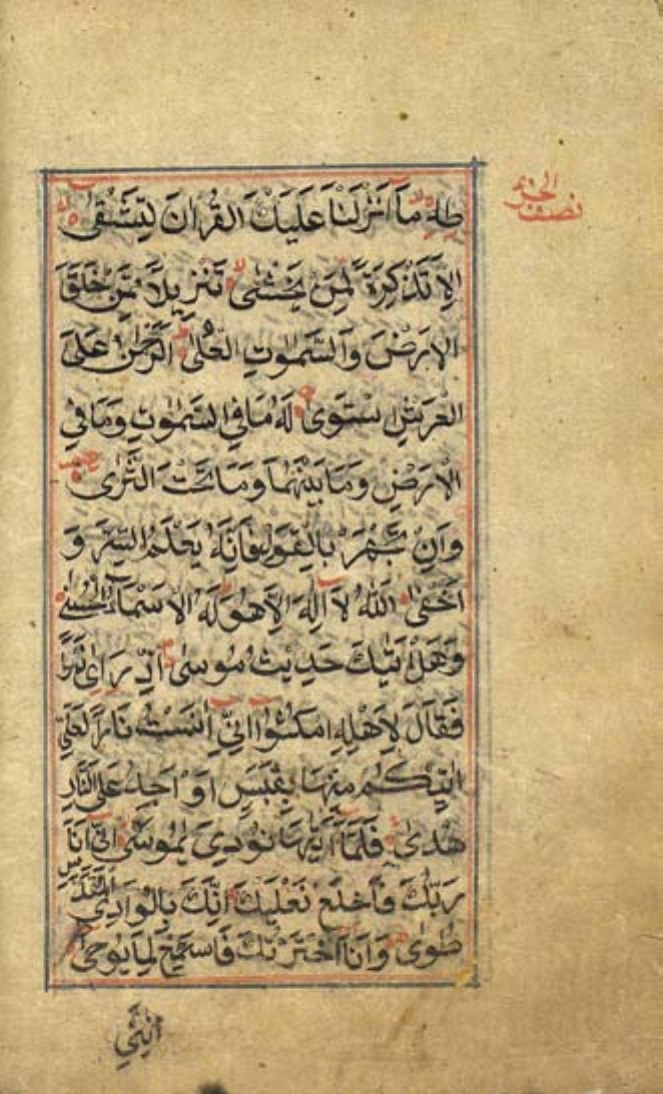 طٰهٰ مَآ اَنْزَلْنَا عَلَيْكَ الْقُرْاٰنَ لِتَشْقٰى
اِلَّا تَذْكِرَةً لِّمَنْ يَّخْشٰى تَنْزِيْلًا مِّمَّنْ خَلَقَ
الْاَرْضَ وَالسَّمٰوٰتِ الْعُلٰى اَلرَّحْمٰنُ عَلَى
الْعَرْشِ اسْتَوٰى لَهٗ مَا فِى السَّمٰوٰتِ وَمَا فِى
الْاَرْضِ وَمَا بَيْنَهُمَا وَمَا تَحْتَ الثَّرٰى
وَاِنْ تَجْهَرْ بِالْقَوْلِ فَاِنَّهٗ يَعْلَمُ السِّرَّ وَ
اَخْفٰى اَللّٰهُ لَآ اِلٰهَ اِلَّا هُوَ لَهُ الْاَسْمَآءُ الْحُسْنٰى
وَهَلْ اَتٰىكَ حَدِيْثُ مُوْسٰى اِذْ رَاٰى نَارًا
فَقَالَ لِاَهْلِهِ امْكُثُوْٓا اِنِّىٓ اٰنَسْتُ نَارًا لَّعَلِّىٓ
اٰتِيْكُمْ مِّنْهَا بِقَبَسٍ اَوْ اَجِدُ عَلَى النَّارِ
هُدًى فَلَمَّآ اَتٰىهَا نُوْدِىَ يٰمُوْسٰى اِنِّىٓ اَنَا
رَبُّكَ فَاخْلَعْ نَعْلَيْكَ اِنَّكَ بِالْوَادِ الْمُقَدَّسِ
طُوًى وَاَنَا اخْتَرْتُكَ فَاسْتَمِعْ لِمَا يُوْحٰى
اِنَّنِىٓ
نصف الحزب